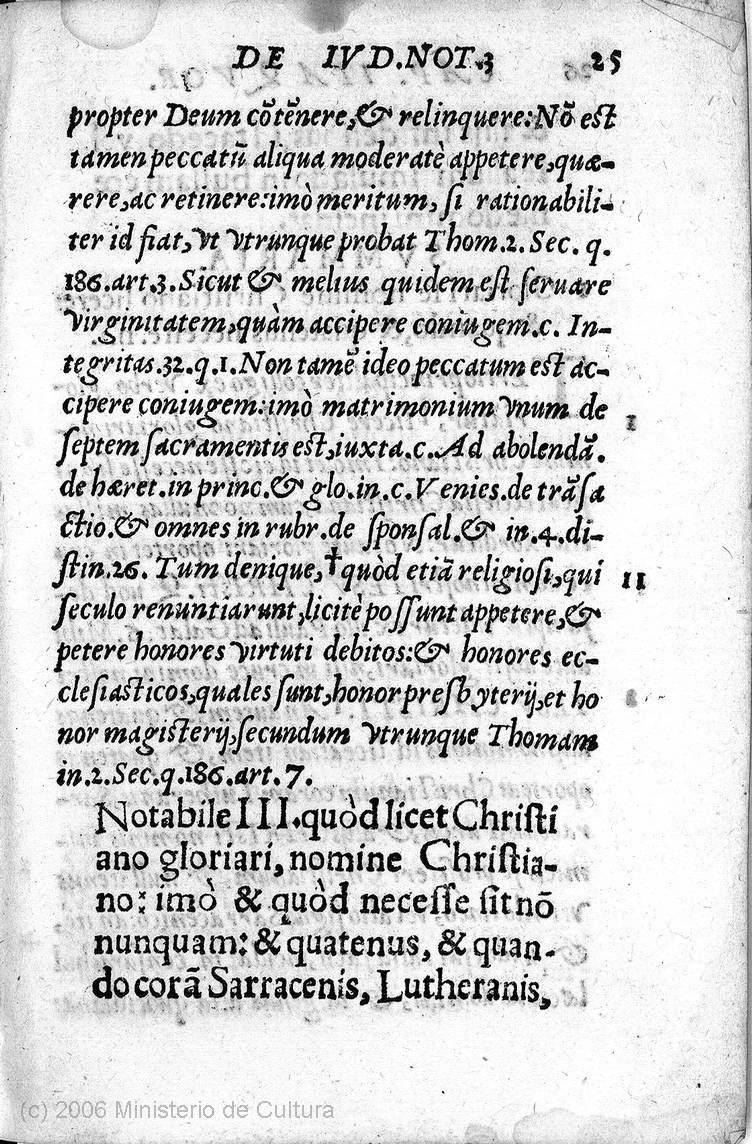 DE IVD.NOT.3 25
propter Deum cõtẽnere,& relinquere:Nõ est
tamen peccatũ aliqua moderatè appetere,quæ-
rere,ac retinere:imò meritum, si rationabili-
ter id fiat,vt vtrunque probat Thom.2. Sec. q.
186.art.3.Sicut & melius quidem est seruare
virginitatem,quàm accipere coniugem.c. In-
tegritas.32.q.1.Non tamẽ ideo peccatum est ac-
cipere coniugem:imò matrimonium vnum de
septem sacramentis est,iuxta.c.Ad abolendã.
de hæret.in princ.& glo.in.c.Venies.de trãsa
ctio.& omnes in rubr.de sponsal.& in.4.di-
stin.26. Tum denique,†quòd etiã religiosi,qui 11
seculo renuntiarunt,licitè possunt appetere,&
petere honores virtuti debitos:& honores ec-
clesiasticos,quales sunt,honor presbyterij,et ho
nor magisterij,secundum vtrunque Thomam
in.2.Sec.q.186.art.7.
Notabile III.quòd licet Christi
ano gloriari, nomine Christia-
no: imò & quòd necesse sit nõ
nunquam: & quatenus, & quan-
do corã Sarracenis, Lutheranis,
(c) 2006 Ministerio de Cultura